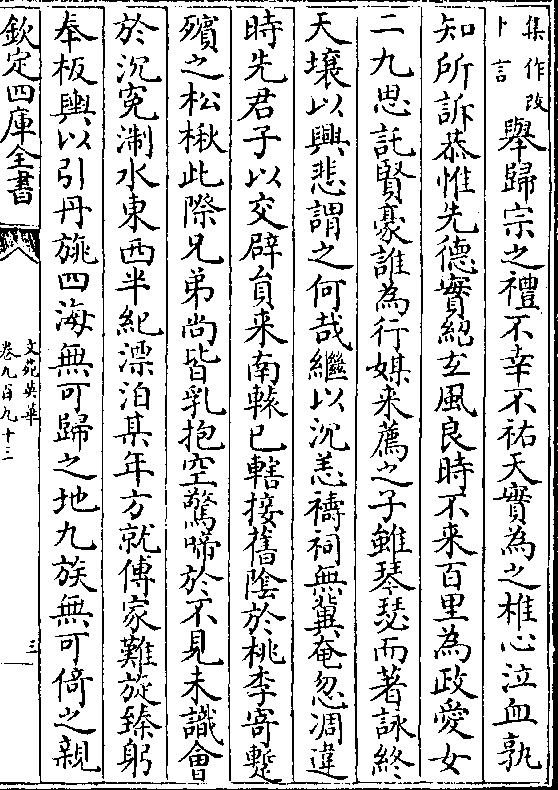 集作改卜言舉歸宗之禮不幸不祐天實為之椎心泣血孰
知所訴恭惟先德實絕玄風良時不来百里為政愛女
二九思託賢豪誰為行媒来薦之子雖琴瑟而著詠終
天壤以興悲謂之何哉繼以沉恙禱祠無冀奄忽凋違
時先君子以交辟員来南轅已轄接舊陰於桃李寄蹔
殯之松楸此際兄弟尚皆乳抱空驚啼於不見未識會
於沉寃淛水東西半紀漂泊某年方就傅家難旋臻躬
奉板輿以引丹旐四海無可歸之地九族無可倚之親
欽定四庫全書
文苑英華
卷九百九十三
三